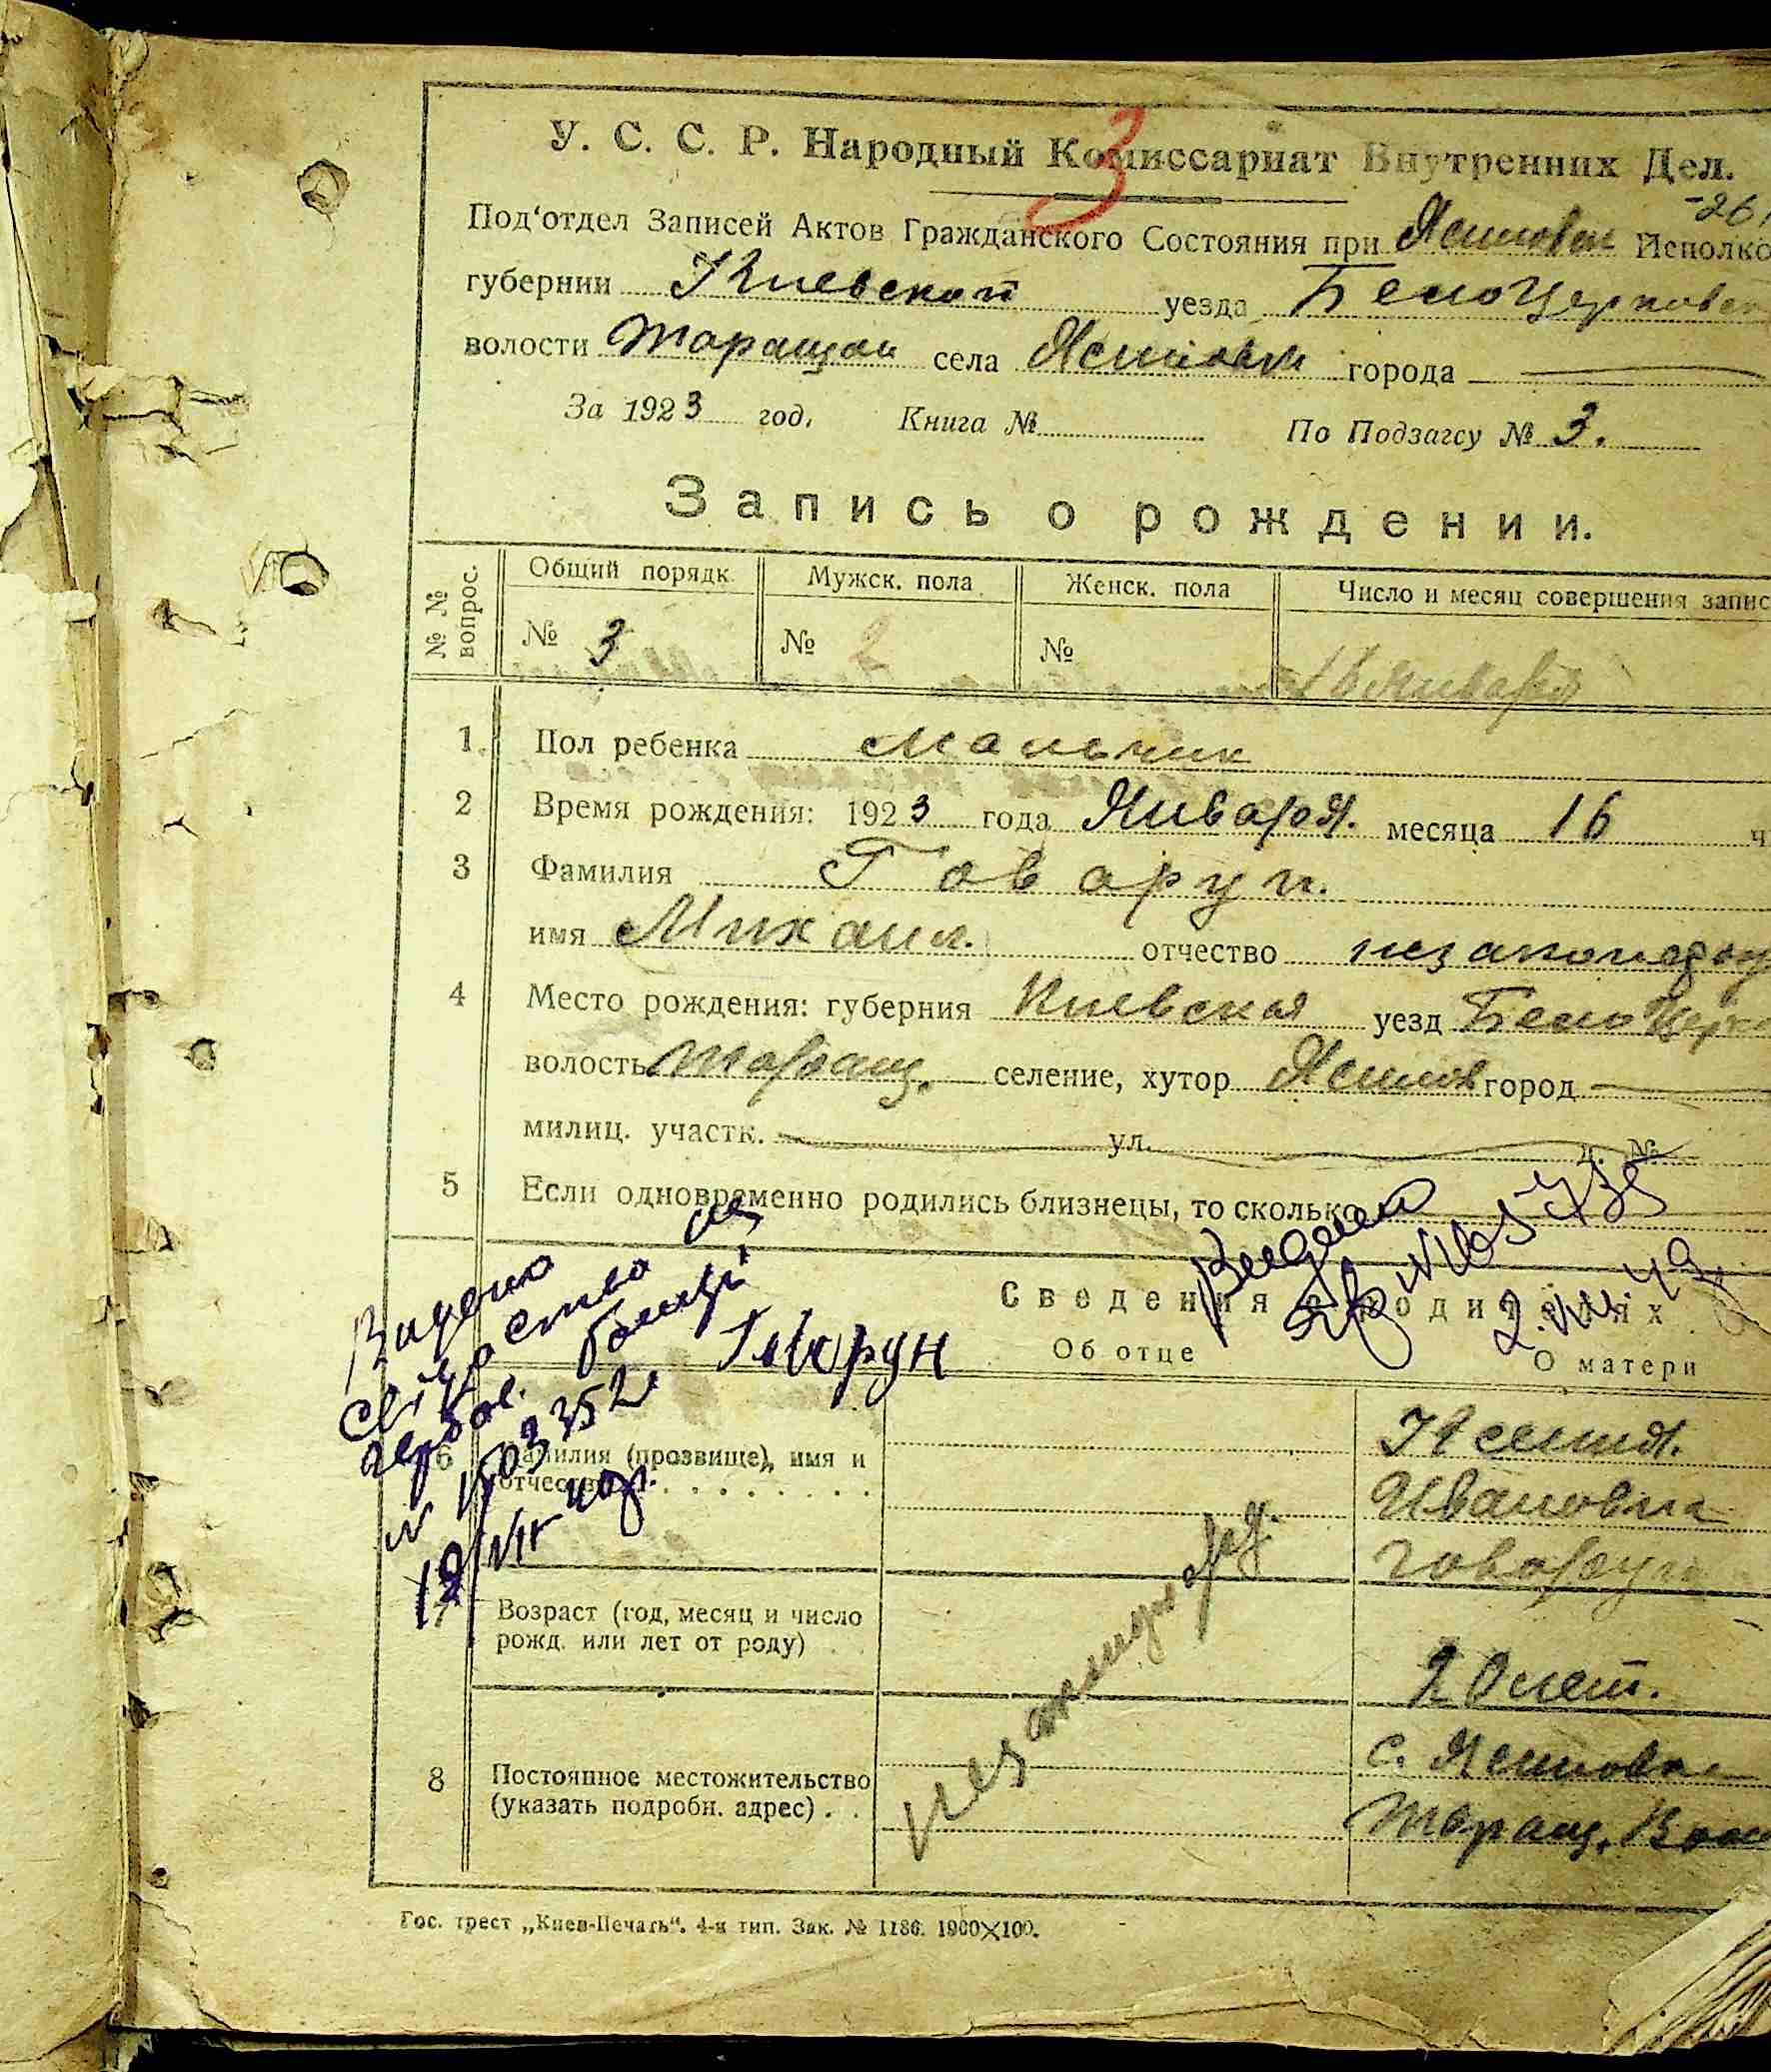 3
У. С. С. Р. Народный Комиссариат Внутренних Дел.
-26
Под'отдел Записей Актов Гражданского Состояния при Ясиновск Исполко
губернии Киевской уезда БелоЦерковск
волости Таращан села Ясиновки города
За 1923 год, Книга № По Подзагсу № 3.
Запись о рождении.
№ № вопрос. Общий порядк. Мужск. пола Женск. пола Число и месяц совершения запис
№ 3 № 2 № 16 Января
1. Пол ребенка мальчик
2 Время рождения: 1923 года Января. месяца 16 ч
3 Фамилия Говорун.
имя Михаил. отчество незаконнорож
4 Место рождения: губерния Киевская уезд БелоЦерк
волость Таращ. селение, хутор Ясинов город
милиц. участк. ул. д. №
5 Если одновременно родились близнецы, то сколько
Сведения о родителях
Об отце О матери
Видано
свідоцтво
Говорун
N 1503352
Видана
2.VIII.49
6 Фамилия (прозвище), имя и отчество
Ксения.
Ивановна
Говорун
Возраст (год, месяц и число рожд. или лет от роду)
20 лет.
8 Постоянное местожительство (указать подробн. адрес)
с. Ясиновка
Таращ. Вол
Гос. трест „Киев-Печать“. 4-я тип. Зак. № 1186. 1900×100.